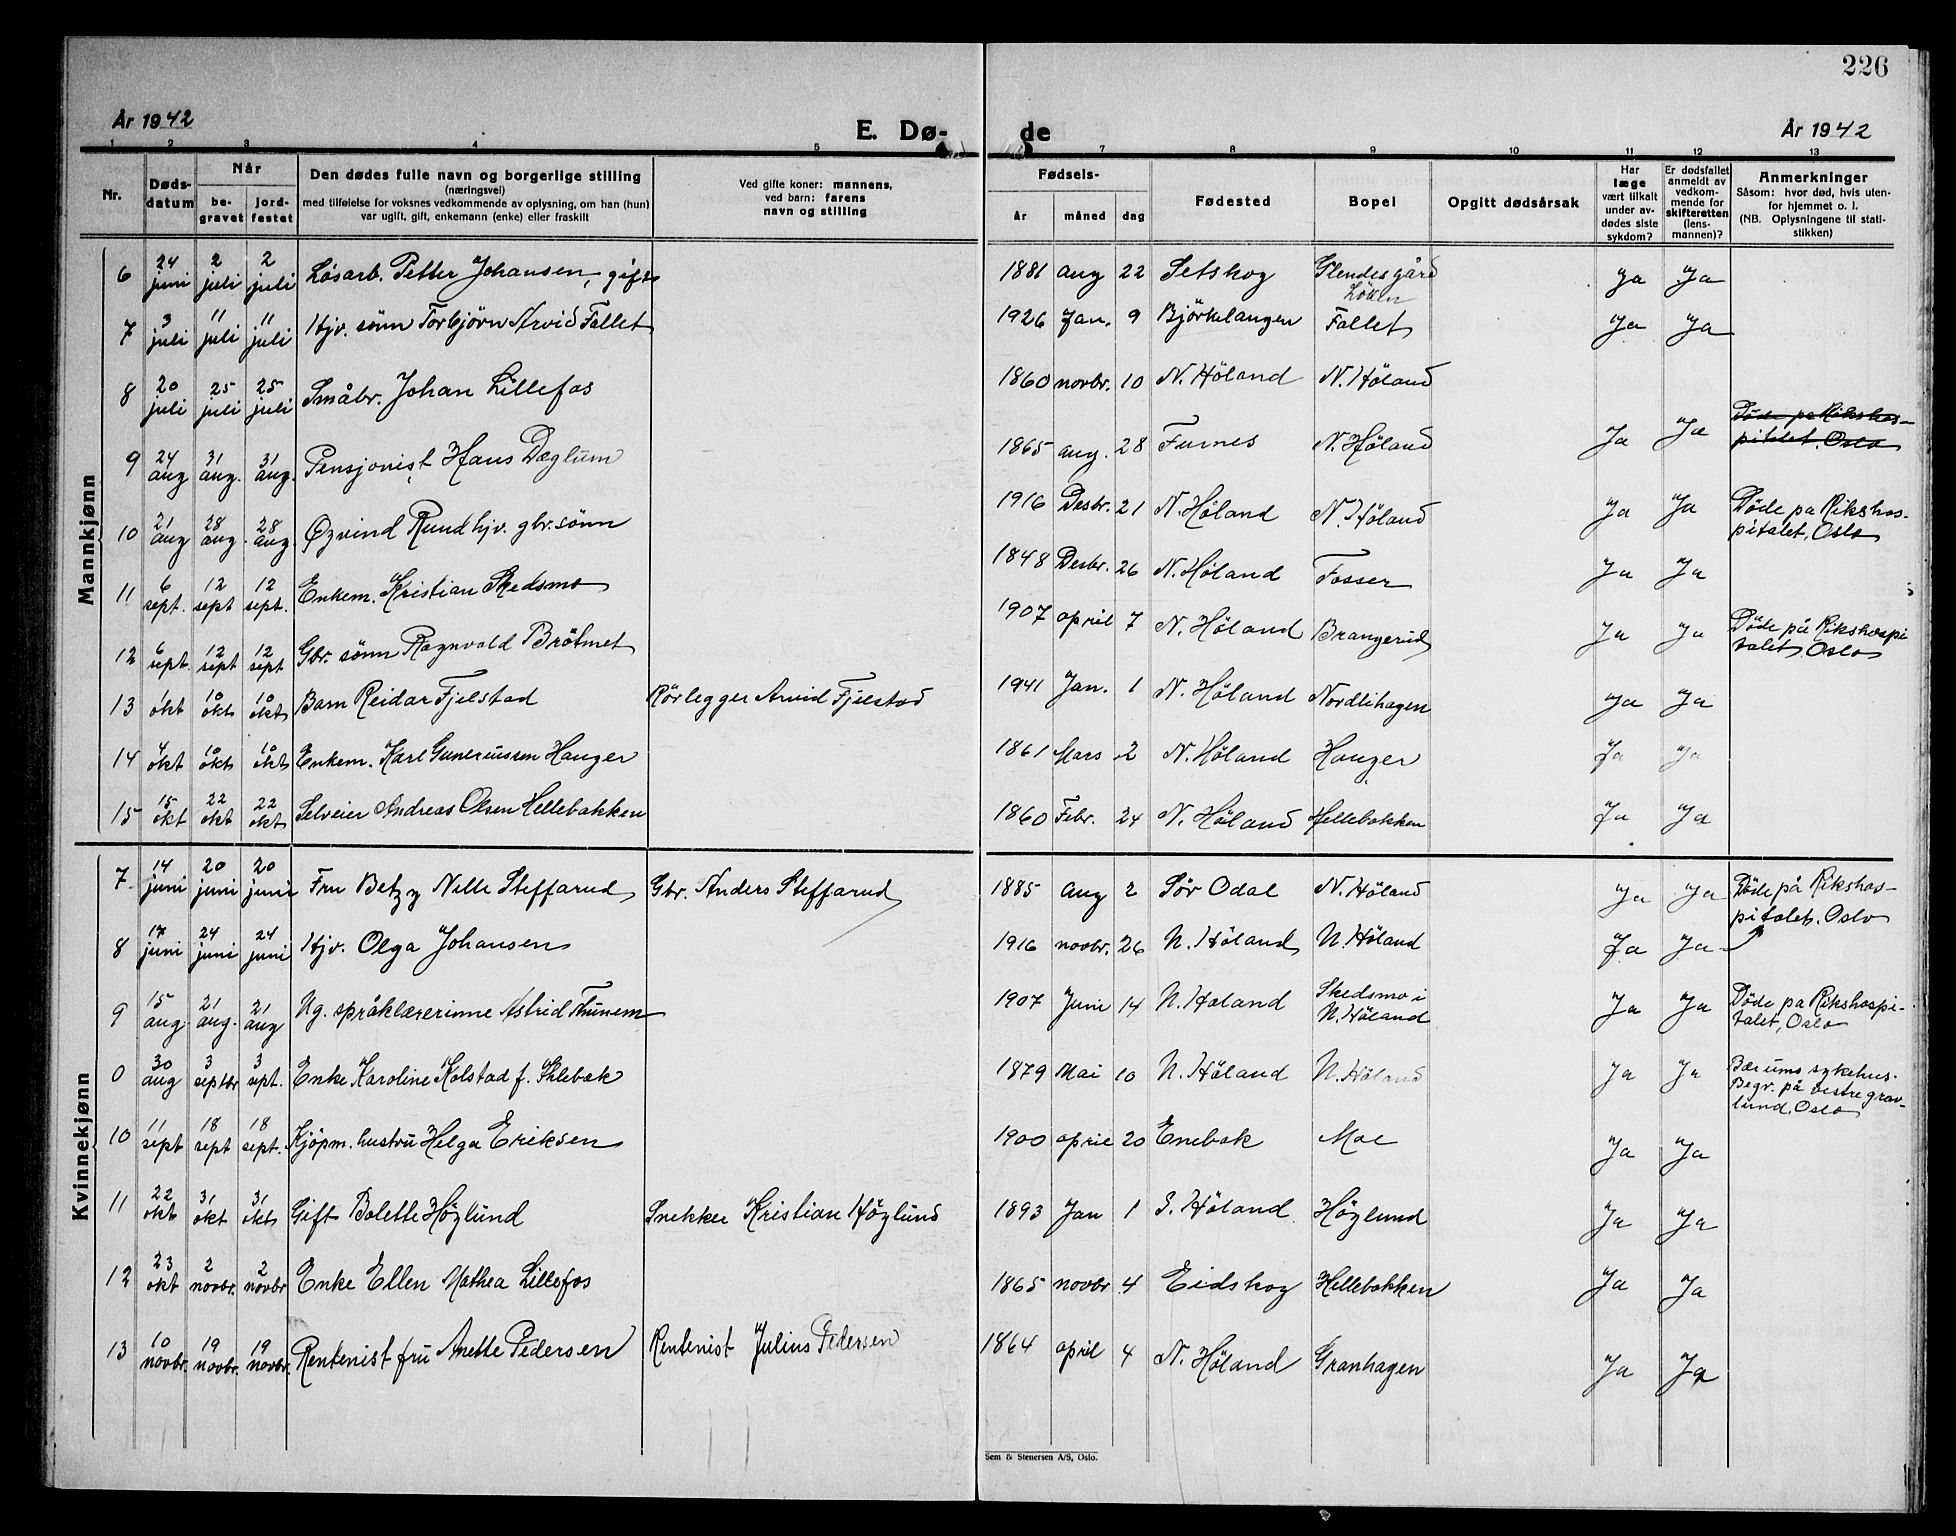 226
År 1942
E. Dø-
de
År 1942
1 2 3 4 5 7 8 9 10 11 12 13
Nr.
Døds-
datum
Når
be-
gravet
jord-
festet
Den dødes fulle navn og borgerlige stilling
(næringsvei)
med tilføielse for voksnes vedkommende av oplysning, om han (hun)
var ugift, gift, enkemann (enke) eller fraskilt
Ved gifte koner: mannens,
ved barn: farens
navn og stilling
Fødsels-
år måned dag
Fødested
Bopel
Opgitt dødsårsak
Har
læge
vært tilkalt
under av-
dødes siste
sykdom?
Er dødsfallet
anmeldt av
vedkom-
mende for
skifteretten
(lens-
mannen)?
Anmerkninger
Såsom: hvor død, hvis uten-
for hjemmet o. l.
(NB. Oplysningene til stati-
stikken)
Mannkjønn
6 24 juni 2 juli 2 juli Løsarb. Petter Johansen, gift 1881 aug 22 Setskog Glendesgård Löken Ja Ja
7 3 juli 11 juli 11 juli Hjv. sönn Torbjörn Arvid Fallet 1926 Jan. 9 Björkelangen Fallet Ja Ja
8 20 juli 25 juli 25 juli Småbr. Johan Lillefos 1860 novbr. 10 N. Höland N. Höland
9 24 aug 31 aug. 31 aug. Pensjonist Hans Dæglum 1865 aug. 28 Furnes N. Höland Ja Ja Döde pa Rikshos-
pitalet. Oslo
10 21 aug 28 aug. 28 aug. Øyvind Rund hjv. gbr. sönn 1916 Desbr. 21 N. Höland N. Höland Ja Ja Döde pa Rikshos-
pitalet, Oslo
11 6 sept. 12 sept 12 sept. Enkem. Kristian Skedsmo 1848 Desbr. 26 N. Höland Fosser Ja Ja
12 6 sept. 12 sept 12 sept Gbr. sönn Ragnvald Bråtmet 1907 april 7 N. Höland Brangerud Ja Ja Döde på Rikshospi
talet, Oslo
13 1 okt 10 okt 10 okt Barn Reidar Fjelstad Rörlegger Arvid Fjelstad 1941 Jan. 1 N. Höland Nordlihagen Ja Ja
14 4 okt 10 okt 10 okt Enkem. Karl Guneriussen Hauger 1861 Mars 2 N. Höland Hauger Ja Ja
15 15 okt 22 okt 22 okt Selveier Andreas Olsen Hellebakken 1860 Febr. 24 N. Höland Hellebakken Ja Ja
Kvinnekjønn
7 14 juni 20 juni 20 juni Fru Betzy Nelle Steffarud Gbr. Anders Steffarud 1885 aug 2 Sör Odal N. Höland Ja Ja Döde på Rikshos-
pitalet. Oslo
8 17 juni 24 juni 24 juni Hjv. Olga Johansen 1916 novbr. 26 N. Höland N. Höland Ja Ja
9 15 aug 21 aug. 21 aug Ug. språklærerinne Astrid Thunem 1907 Juni 14 N. Höland Skedsmo i
N. Höland Ja Ja Döde pa Rikshospi-
talet, Oslo
0 30 aug 3 septbr 3 sept. Enke Karoline Kolstad f. Sklebæk 1879 Mai 10 N. Höland N. Höland Ja Ja Bærums sykehus.
Begr. på vestre grav-
lund. Oslo
10 11 sept 18 sept 18 sept. Kjöpm. hustru Helga Eriksen 1900 april 20 Enebak Moe Ja Ja
11 22 okt 31 okt 31 okt Gift Bolette Höglund Snekker Kristian Höglund 1893 Jan 1 S. Höland Höglund Ja Ja
12 23 okt 2 novbr. 2 novbr Enke Ellen Mathea Lillefos 1865 novbr 4 Eidskog Hellebakken Ja Ja
13 10 novbr. 19 novbr. 19 novbr. Rentenist fru Anette Pedersen Rentenist Julius Pedersen 1864 april 4 N. Höland Granhagen Ja Ja
Sem & Stenersen A/S, Oslo.